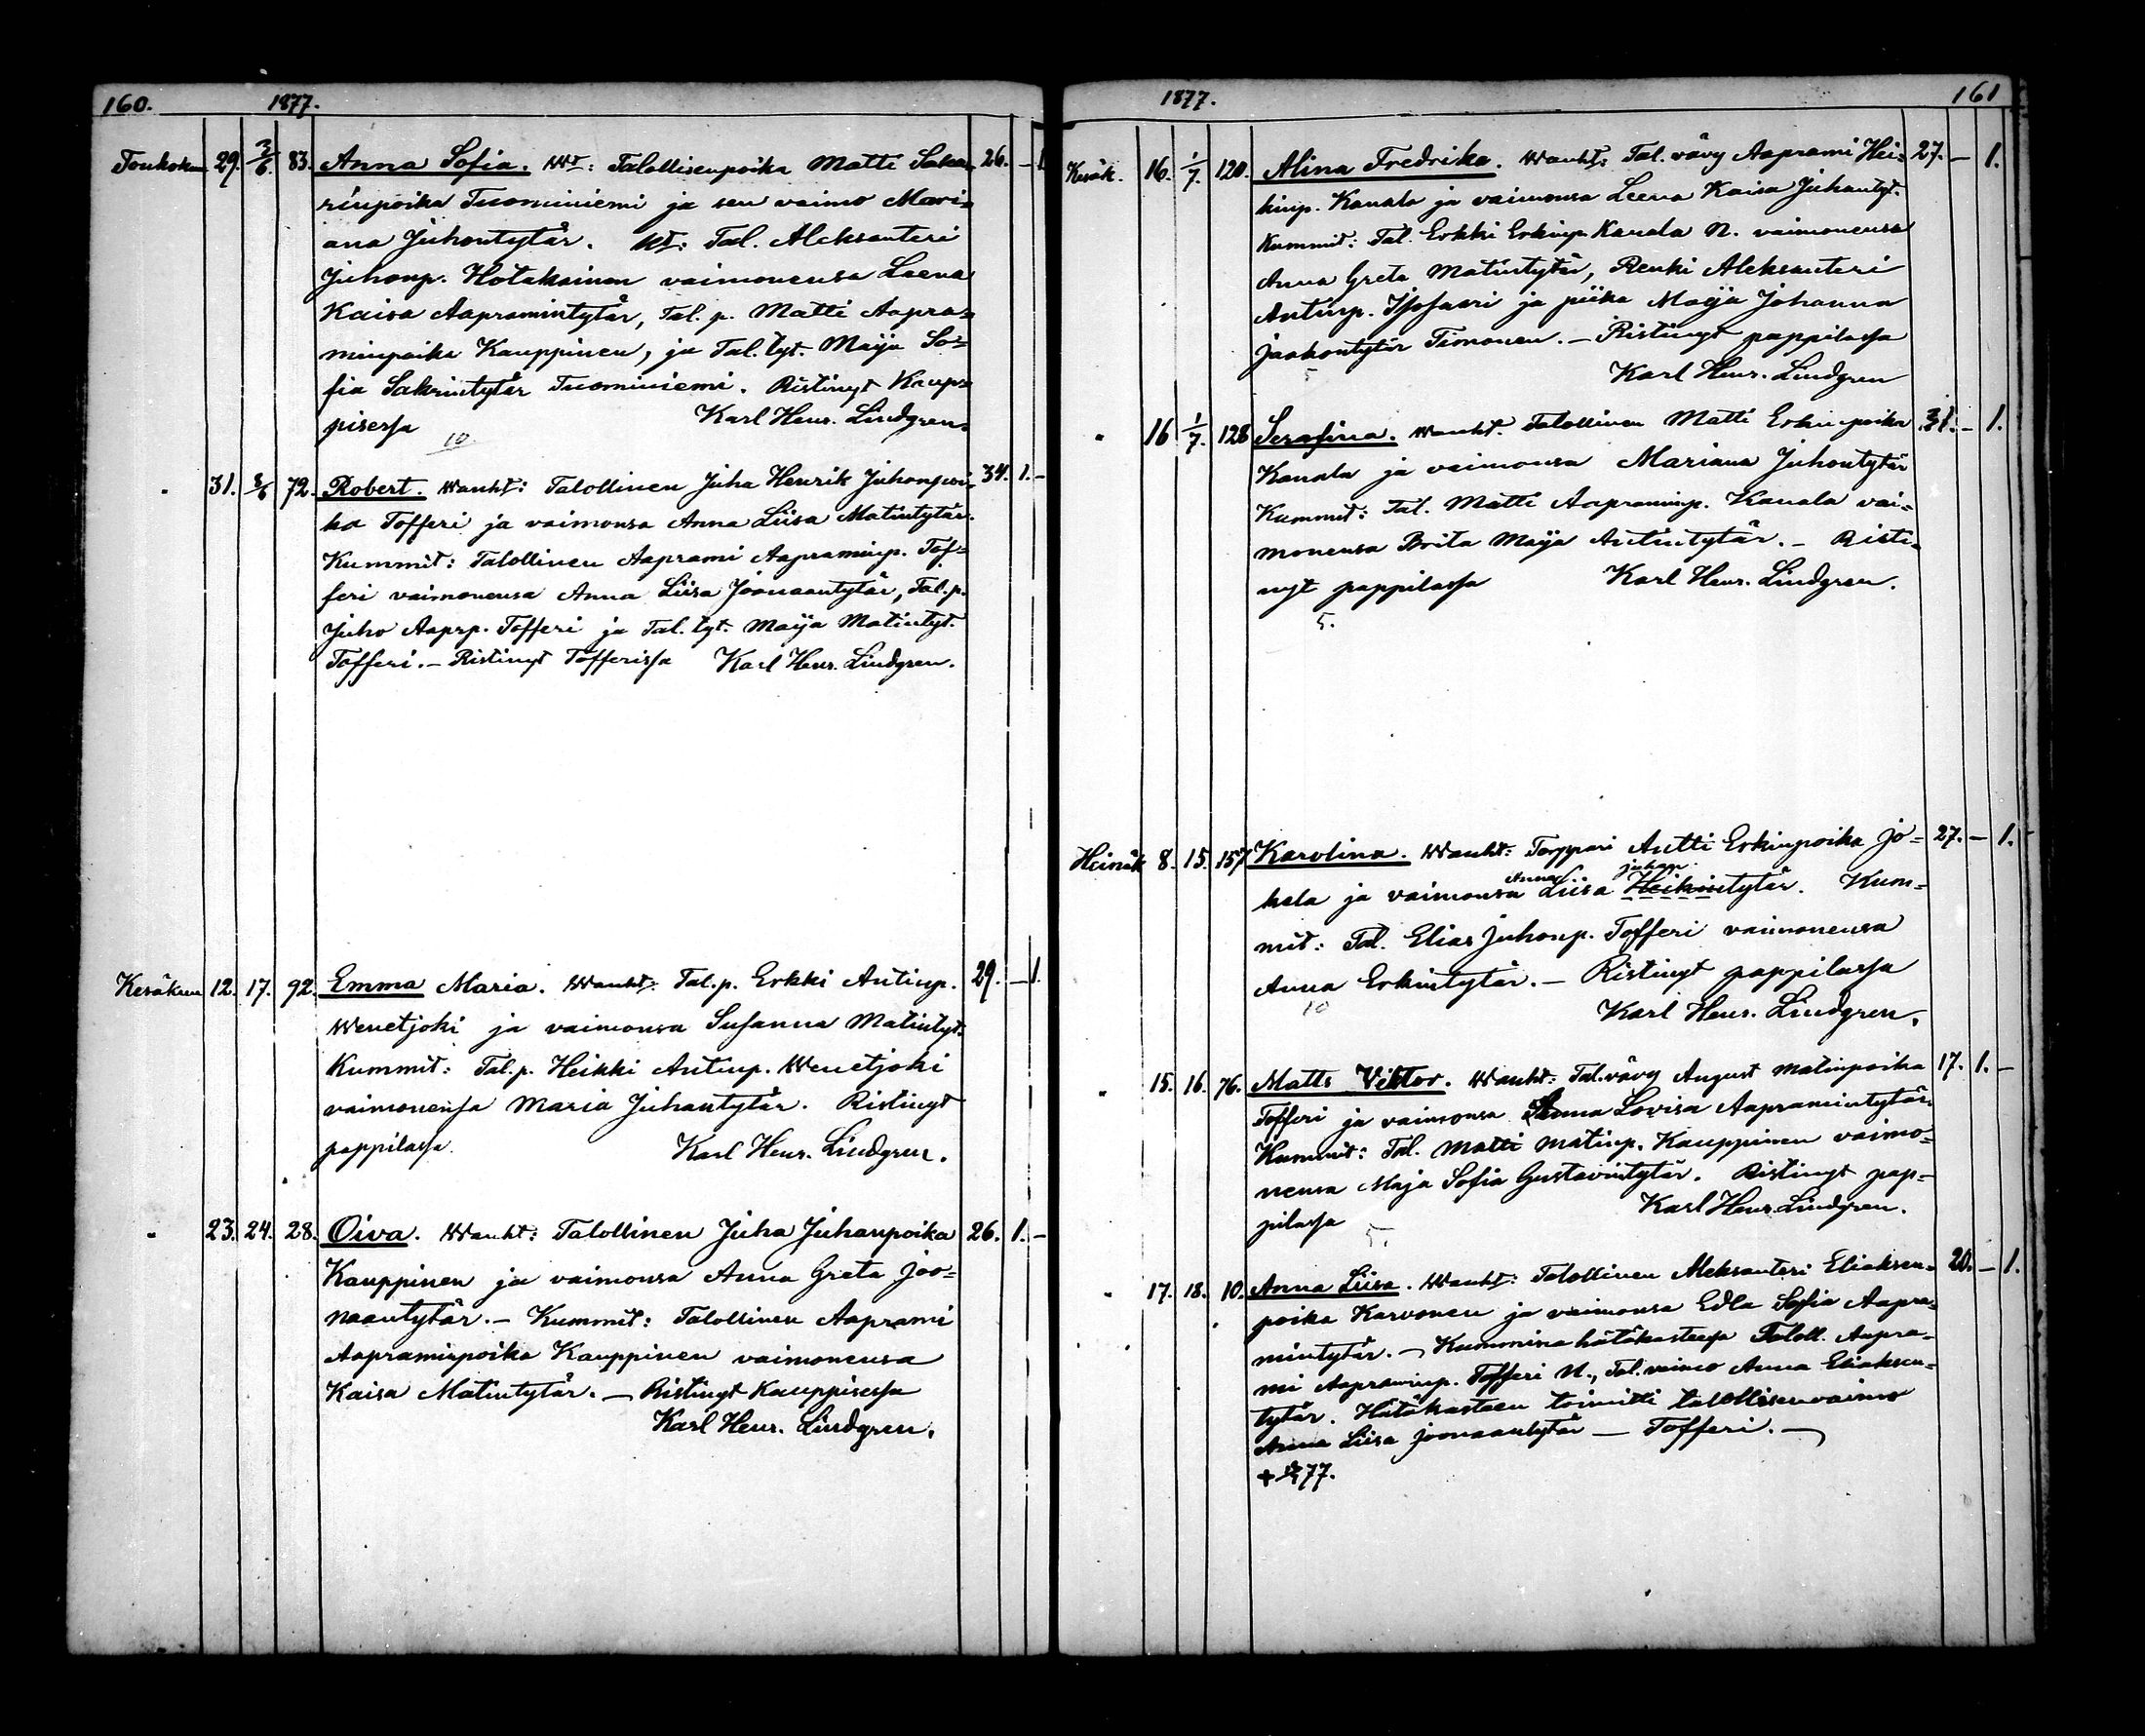 160. 1877.
Toukokuu 29. 3/6. 83. Anna Sofia. WT: Talollisenpoika Matti Saka- 26. – 1
rinpoika Tuominiemi ja sen vaimo Mari-
ana Juhontytär. Tal. Aleksanteri
Juhonp. Hotakainen vaimonensa Leena
Kaisa Aapramintytär, Tal. p. Matti Aapra-
minpoika Kauppinen, ja Tal. tyt. Maija So-
fia Sakrintytär Tuominiemi. Ristinyt Kaup-
pisessa Karl Henr. Lindgren.
10
" 31. 3/6 72. Robert. Wanht: Talollinen Juha Henrik Juhonpoi- 34. 1. –
ka Tofferi ja vaimonsa Anna Liisa Matintytär.
Kummit: Talollinen Aaprami Aapraminp. Tof-
feri vaimonensa Anna Liisa Joonaantytär, Tal. p.
Juho Aaprp. Tofferi ja Tal. tyt. Maija Matintyt.
Tofferi. – Ristinyt Tofferissa Karl Henr. Lindgren.
Kesäkuu 12. 17. 92. Emma Maria. Wanht: Tal. p. Erkki Antinp. 29. – 1.
Wenetjoki ja vaimonsa Susanna Matintyt.
Kummit: Tal. p. Heikki Antinp. Wenetjoki
vaimonensa Maria Juhantytär. Ristinyt
pappilassa. Karl Henr. Lindgren.
" 23. 24. 28. Oiva. Wanht: Talollinen Juha Juhanpoika 26. 1. –
Kauppinen ja vaimonsa Anna Greta Joo-
naantytär. – Kummit: Talollinen Aaprami
Aapraminpoika Kauppinen vaimonensa
Kaisa Matintytär. – Ristinyt Kauppisessa
Karl Henr. Lindgren.
1877. 161
Kesäk. 16. 1/7. 120. Alina Fredrika. Wanht: Tal. vävy Aaprami Hei- 27. – 1.
kinp. Kanala ja vaimonsa Leena Kaisa Juhantyt.
Kummit: Tal. Erkki Erkinp. Kanala N. vaimonensa
Anna Greta Matintytär, Renki Aleksanteri
Antinp. Isosaari ja piika Maija Johanna
Jaakontytär Timonen. – Ristinyt pappilassa
5 Karl Henr. Lindgren
" 16 1/7. 128 Serafina. Wanht: Talollinen Matti Erkinpoika 31. – 1.
Kanala ja vaimonsa Mariana Juhontytär
Kummit: Tal. Matti Aapraminp. Kanala vai-
monensa Brita Maija Antintytär. – Risti-
nyt pappilassa Karl Henr. Lindgren.
5.
Heinäk 8. 15. 157 Karolina. Wanht: Torppari Antti Erkinpoika Jo- 27. – 1.
Anna juhan
kela ja vaimonsa Liisa Heikintytär. Kum-
mit: Tal. Elias Juhonp. Tofferi vaimonensa
Anna Erkintytär. – Ristinyt pappilassa
10 Karl Henr. Lindgren.
" 15. 16. 76. Matts Viktor. Wanht: Tal. vävy August Matinpoika 17. 1. –
Tofferi ja vaimonsa Anna Lovisa Aapramintytär.
Kummit: Tal. Matti Matinp. Kauppinen vaimo-
nensa Maja Sofia Gustavintytär. Ristinyt pap-
pilassa Karl Henr. Lindgren.
5.
" 17. 18. 10. Anna Liisa. Wanht: Talollinen Aleksanteri Eliaksen- 20. – 1.
poika Karvonen ja vaimonsa Edla Sofia Aapra-
mintytär. – Kummina hätäkasteessa Taloll. Aapra-
mi Aapraminp. Tofferi N., Tal. vaimo Anna Eliaksen-
tytär. Hätäkasteen toimitti talollisenvaimo
Anna Liisa Joonaantytär – Tofferi. –
+ 77.